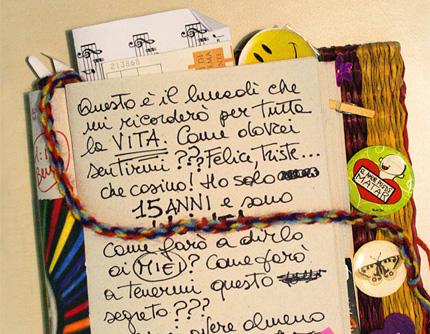 213868
Questo è il lunedì che
mi ricorderò per tutta
la VITA. Come dovrei
sentirmi??? Felice, Triste...
che casino! Ho solo
15 ANNI e sono
Come farò a dirlo
ai MIEI? Come farò
a tenermi questo
segreto???
almeno
MATAR